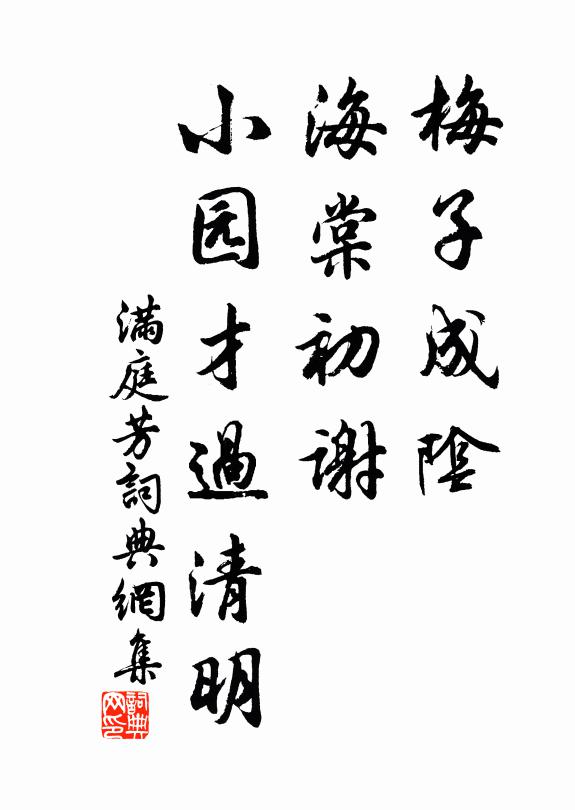 梅子成陰
海棠初谢
小园才過清明
滿庭芳詞典網集
詞典網印